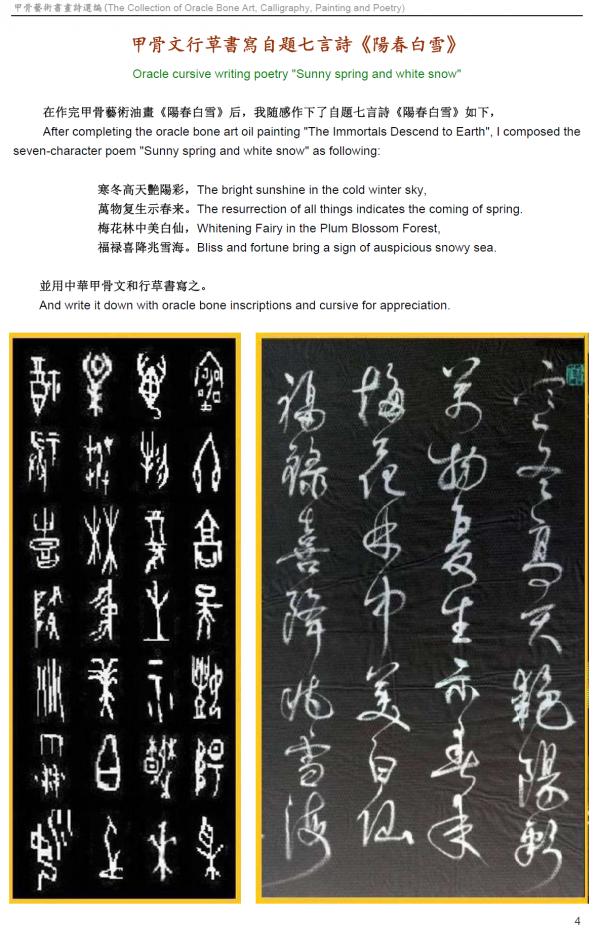 甲骨藝術書畫詩選編(The Collection of Oracle Bone Art, Calligraphy, Painting and Poetry)
甲骨文行草書寫自題七言詩《陽春白雪》
Oracle cursive writing poetry "Sunny spring and white snow"
在作完甲骨藝術油畫《陽春白雪》后，我随感作下了自題七言詩《陽春白雪》如下，
After completing the oracle bone art oil painting "The Immortals Descend to Earth", I composed the
seven-character poem "Sunny spring and white snow" as following:
寒冬高天艷陽彩，The bright sunshine in the cold winter sky,
萬物复生示春来。The resurrection of all things indicates the coming of spring.
梅花林中美白仙，Whitening Fairy in the Plum Blossom Forest,
福禄喜降兆雪海。Bliss and fortune bring a sign of auspicious snowy sea.
並用中華甲骨文和行草書寫之。
And write it down with oracle bone inscriptions and cursive for appreciation.
寒冬高天艷陽彩
萬物复生示春来
梅花林中美白仙
福禄喜降兆雪海
4